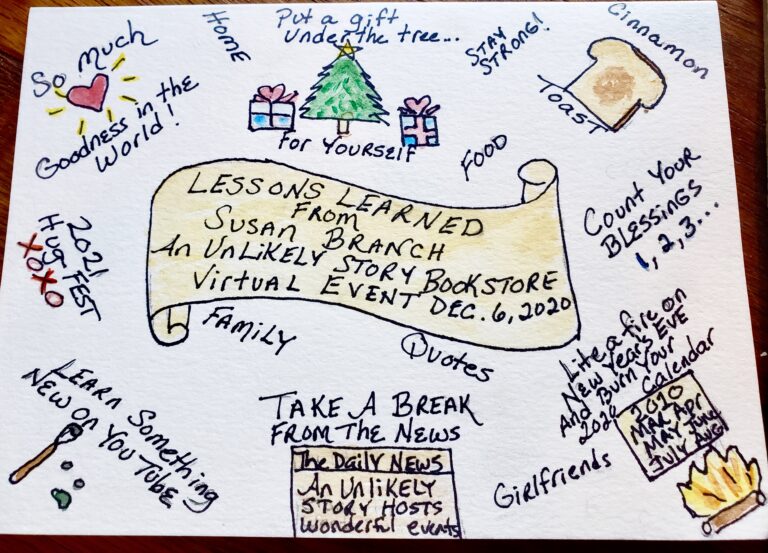 So Much
Goodness in the
World!
HOME
Put a gift
Under the tree...
For Yourself
STAY
STRONG!
Cinnamon
Toast
FOOD
LESSONS LEARNED
From
SUSAN BRANCH
An UnLiKely STORY BOOKSTORE
Virtual Event DEC. 6, 2020
Count Your
Blessings
1, 2, 3...
2021
Hug Fest
XOXO
FAMILY
Quotes
Lite a fire on
New Years Eve
And Burn Your
2020 Calendar
2020
MAR Apr
MAY June
July Aug
Learn Something
New on YouTube
TAKE A BREAK
FROM The News
The Daily News
An UnLikely
Story Hosts
Wonderful events
Girlfriends